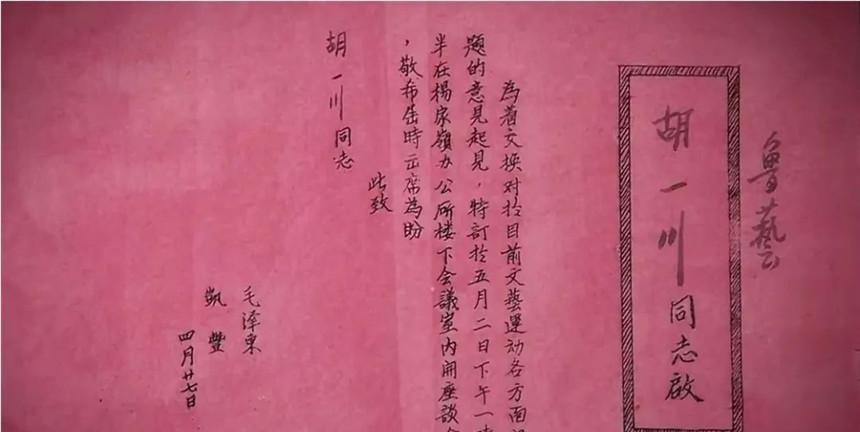 魯藝
胡一川同志啟
為着交换对於目前文藝運动各方面
題的意見起見，特訂於五月二日下午一時
半在楊家嶺办公所楼下会議室内開座談
，敬希屆時出席為盼
此致
胡一川同志
毛泽东
凱豐
四月廿七日